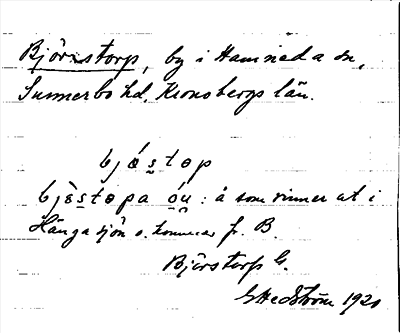 Björstorp, by i Hamneda sn,
Sunnerbo hd. Kronobergs län.
bjǿs̱tøp
bjȅs̱tøpa óu̱: å som rinner ut i
Hänga sjön o. kommer fr. B.
Björstorps G.
G Hedström 1920